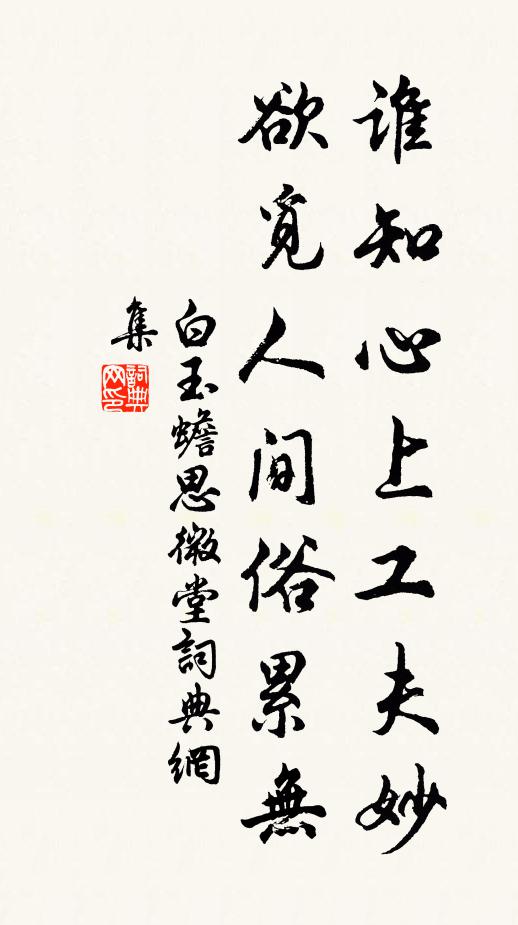 誰知心上工夫妙
欲覓人間俗累無
白玉蟾思微堂詞典網
集
詞典网印